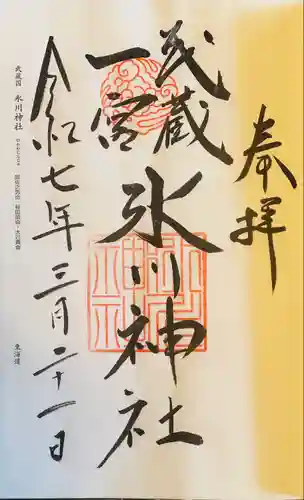 奉拝
武蔵
一宮
氷川神社
令和七年三月二十一日
武蔵国 氷川神社
東海道